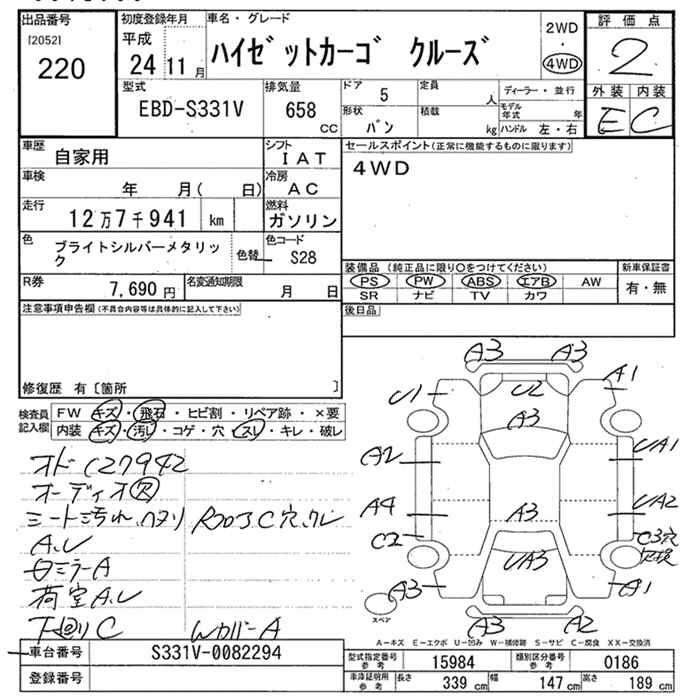 出品番号
[2052]
220
初度登録年月
平成
24 11 月
車名・グレード
ハイゼットカーゴ クルーズ
2WD
・
4WD
評価点
2
外装 内装
E C
型式
EBD-S331V
排気量
658 cc
ドア 5
形状 バン
定員 人
積載 kg
ディーラー・並行
モデル年式 年
ハンドル 左・右
車歴 自家用
シフト IAT
車検 年 月( 日)
冷房 AC
走行 12万7千941 km
燃料 ガソリン
色 ブライトシルバーメタリック
色替
色コード S28
R券 7,690 円
名変通知期限 月 日
セールスポイント(正常に機能するものに限ります)
4WD
装備品 (純正品に限り○をつけてください)
PS PW ABS エアB AW
SR ナビ TV カワ
新車保証書
有・無
後日品
注意事項申告欄(不具合内容等は具体的に記入して下さい)
修復歴 有〔箇所 〕
検査員記入欄
FW キズ・飛石・ヒビ割・リペア跡・×要
内装 キズ・汚レ・コゲ・穴・スレ・キレ・破レ
オド127942
オーディオ欠
シート汚れ、ハタリ
A.U
ミラーA
荷室A.U
下廻りC
C穴、クレ
WカバーA
A3 A3
U1 U2 A1
A3
A2 UA1
A4 A3 UA2
C2 C3穴
UA3 欠損
A3 A1
A3 A2
スペア
A-キズ E-エクボ U-凹み W-補修跡 S-サビ C-腐食 XX-交換済
車台番号 S331V-0082294
登録番号
型式指定番号 参考 15984
類別区分番号 参考 0186
車庫証明用 参考 長さ 339 cm 幅 147 cm 高さ 189 cm